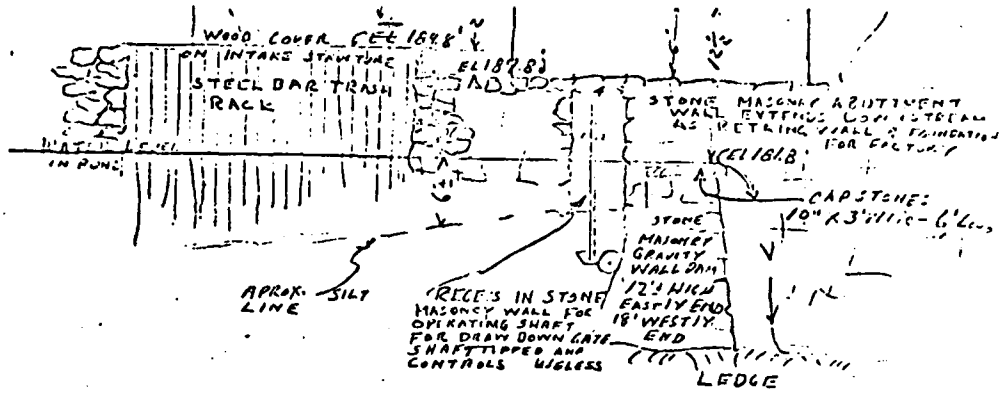 WOOD COVER EL 164.8'
ON INTAKE STRUCTURE
STEEL BAR TRASH
RACK
WATER LEVEL
IN POND
APROX. SILT
LINE
STONE MASONRY ABUTTMENT
WALL EXTENDS DOWNSTREAM
AS RETAING WALL & FOUNDATION
FOR FACTORY
CAPSTONES
STONE
MASONRY
GRAVITY
WALL DAM
12'± HIGH
EASTLY END
18' WESTLY
END
RECESS IN STONE
MASONRY WALL FOR
OPERATING SHAFT
FOR DRAW DOWN GATE
SHAFT TIPPED AND
CONTROLS USELESS
LEDGE